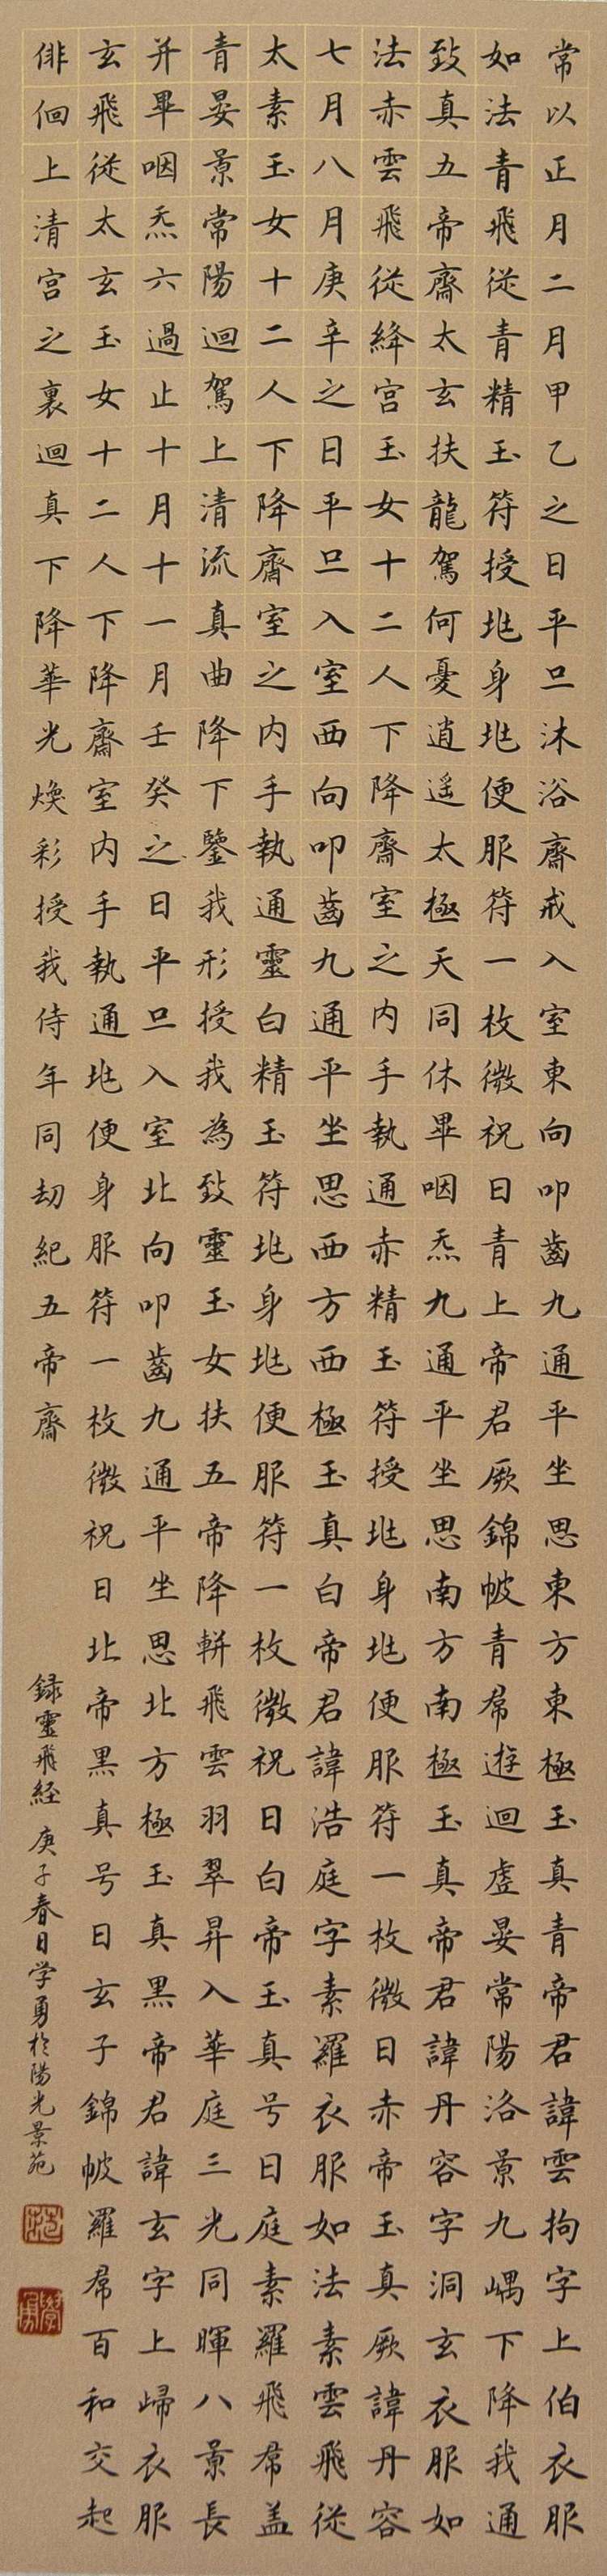 常以正月二月甲乙之日平旦沐浴齋戒入室東向叩齒九通平坐思東方東極玉真青帝君諱雲拘字上伯衣服
如法青飛從青精玉符授兆身兆便服符一枚微祝曰青上帝君厥錦帔青帬遊迴虛晏常陽洛景九嵎下降我通
致真五帝齋太玄扶龍駕何憂逍遥太極天同休畢咽炁九通平坐思南方南極玉真帝君諱丹容字洞玄衣服如
法赤雲飛從絳宮玉女十二人下降齋室之内手執通赤精玉符授兆身兆便服符一枚微曰赤帝玉真厥諱丹容
七月八月庚辛之日平旦入室西向叩齒九通平坐思西方西極玉真白帝君諱浩庭字素羅衣服如法素雲飛從
太素玉女十二人下降齋室之内手執通靈白精玉符兆身兆便服符一枚微祝曰白帝玉真号曰庭素羅飛帬盖
青晏景常陽迴駕上清流真曲降下鑒我形授我為致靈玉女扶五帝降軿飛雲羽翠昇入華庭三光同暉八景長
并畢咽炁六過止十月十一月壬癸之日平旦入室北向叩齒九通平坐思北方極玉真黑帝君諱玄字上歸衣服
玄飛從太玄玉女十二人下降齋室内手執通兆便身服符一枚微祝曰北帝黑真号曰玄子錦帔羅帬百和交起
俳佪上清宮之裏迴真下降華光煥彩授我侍年同劫紀五帝齋
録靈飛経 庚子春日学勇於陽光景苑
學勇